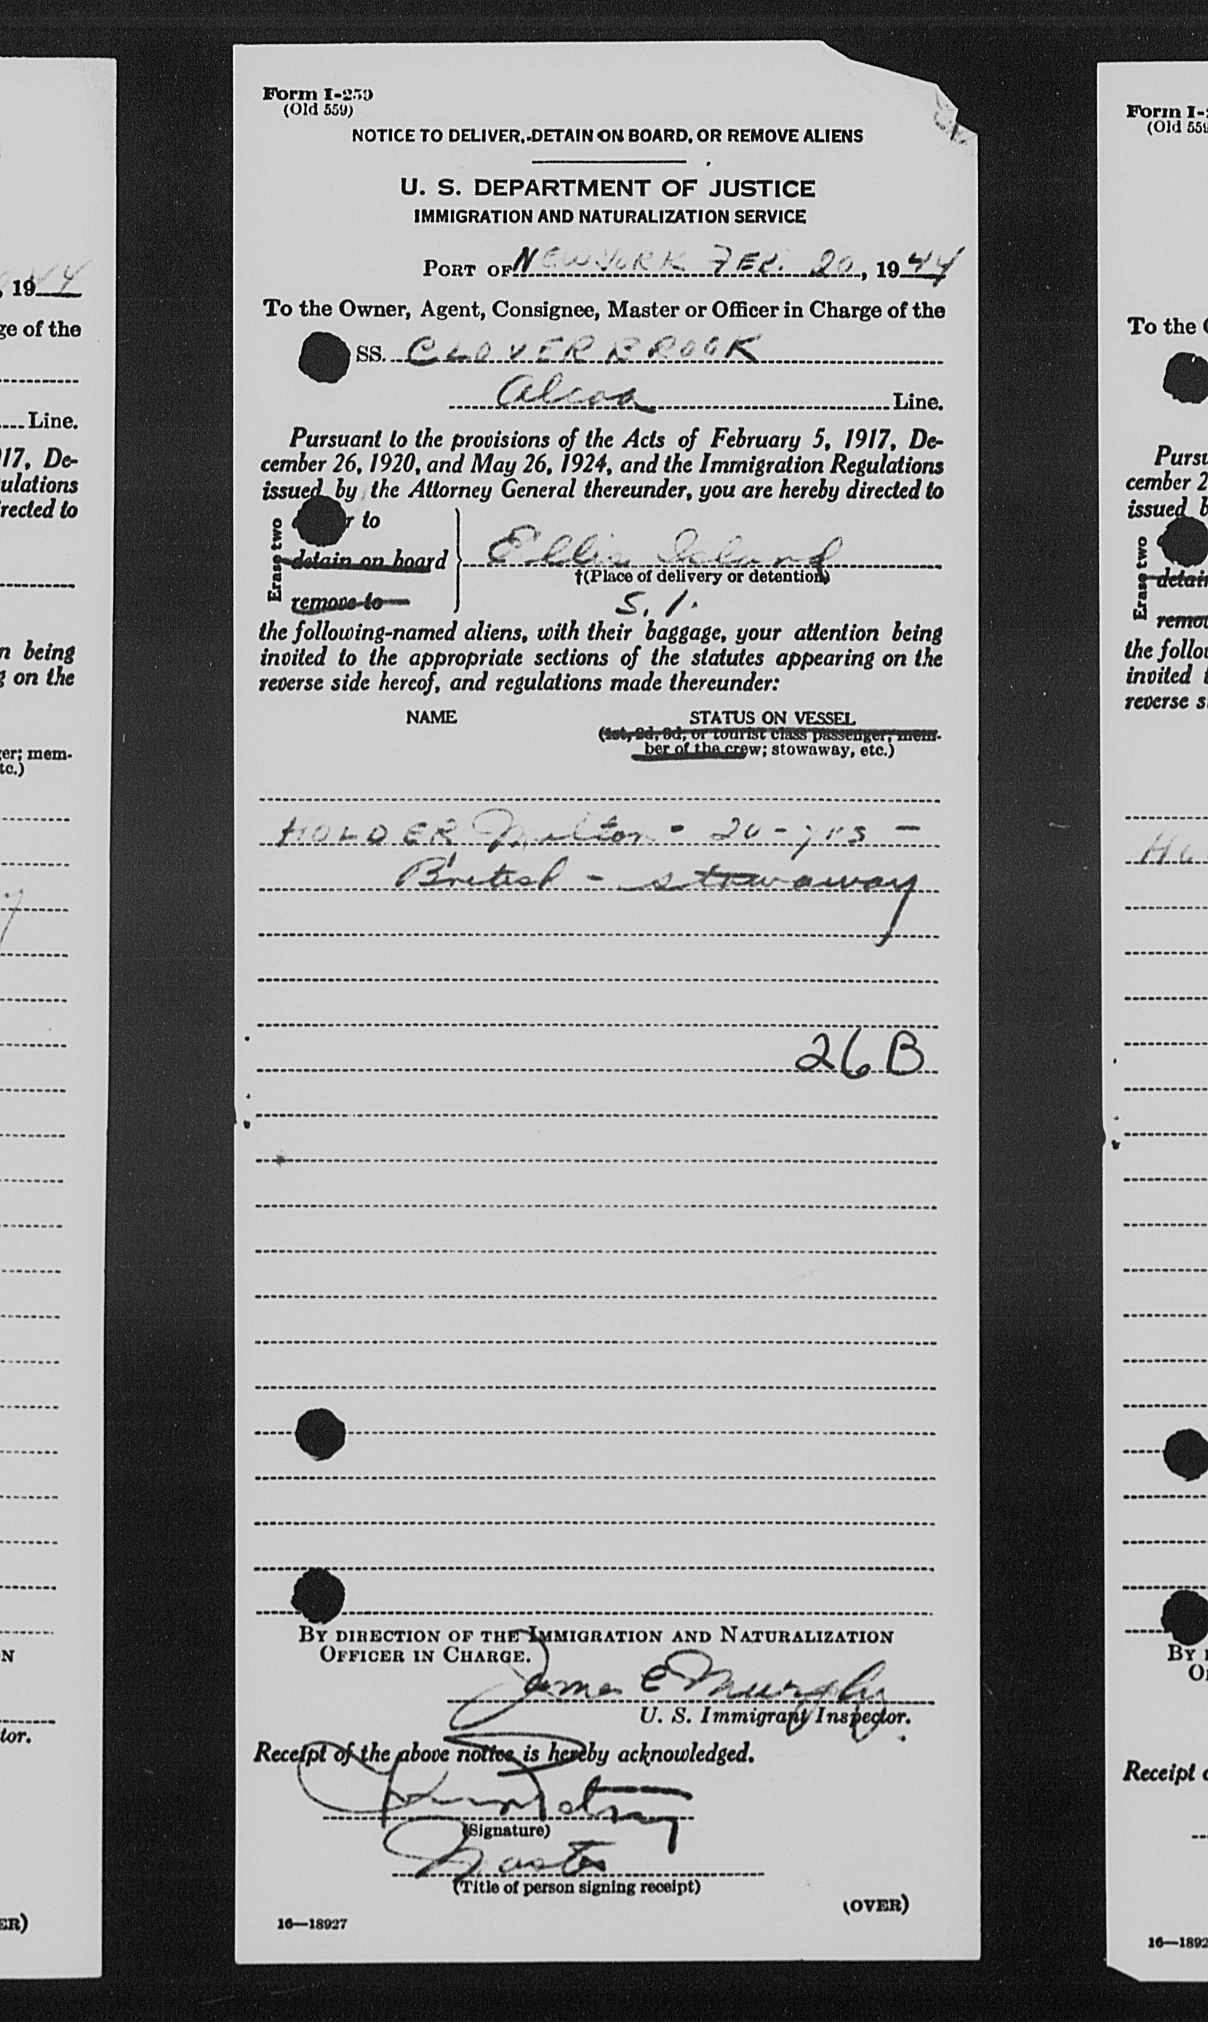 Form I-259
(Old 559)
NOTICE TO DELIVER, DETAIN ON BOARD, OR REMOVE ALIENS
U. S. DEPARTMENT OF JUSTICE
IMMIGRATION AND NATURALIZATION SERVICE
PORT OF NEW YORK FEB. 20, 1944
To the Owner, Agent, Consignee, Master or Officer in Charge of the
SS. CLOVERBROOK
Alcoa Line.
Pursuant to the provisions of the Acts of February 5, 1917, De-
cember 26, 1920, and May 26, 1924, and the Immigration Regulations
issued by the Attorney General thereunder, you are hereby directed to
Erase two
to
detain on board
remove to
Ellis Island
†(Place of delivery or detention)
S. I.
the following-named aliens, with their baggage, your attention being
invited to the appropriate sections of the statutes appearing on the
reverse side hereof, and regulations made thereunder:
NAME STATUS ON VESSEL
(1st, 2d, 3d, or tourist class passenger; mem-
ber of the crew; stowaway, etc.)
HOLDER Milton - 20 - yrs -
British - stowaway
26 B
BY DIRECTION OF THE IMMIGRATION AND NATURALIZATION
OFFICER IN CHARGE.
James E Murphy
U. S. Immigrant Inspector.
Receipt of the above notice is hereby acknowledged.
(Signature)
Master
(Title of person signing receipt)
(OVER)
16—18927